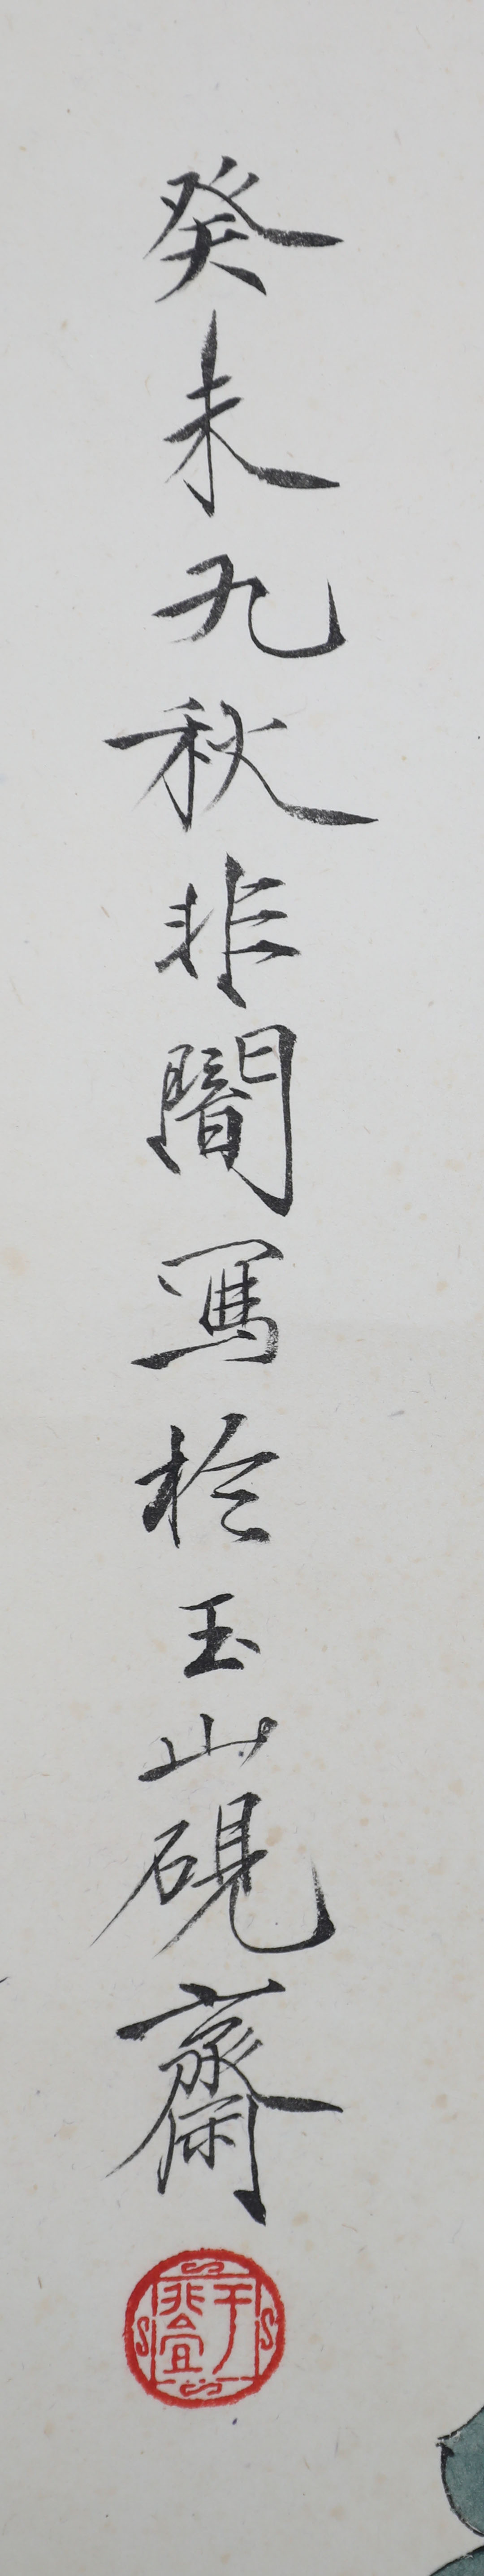 癸未九秋非闇寫於玉山硯齋
于非壹